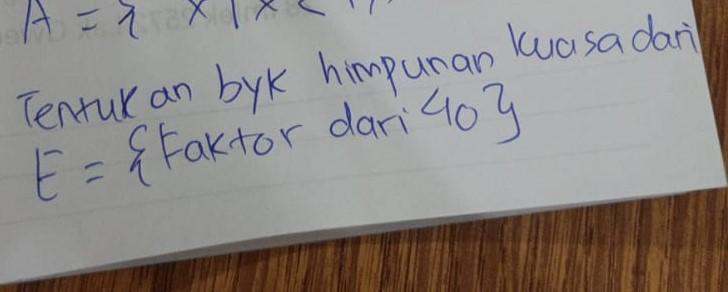 A = { x | x <
Tentukan byk himpunan kuasa dari
E = {Faktor dari 40}